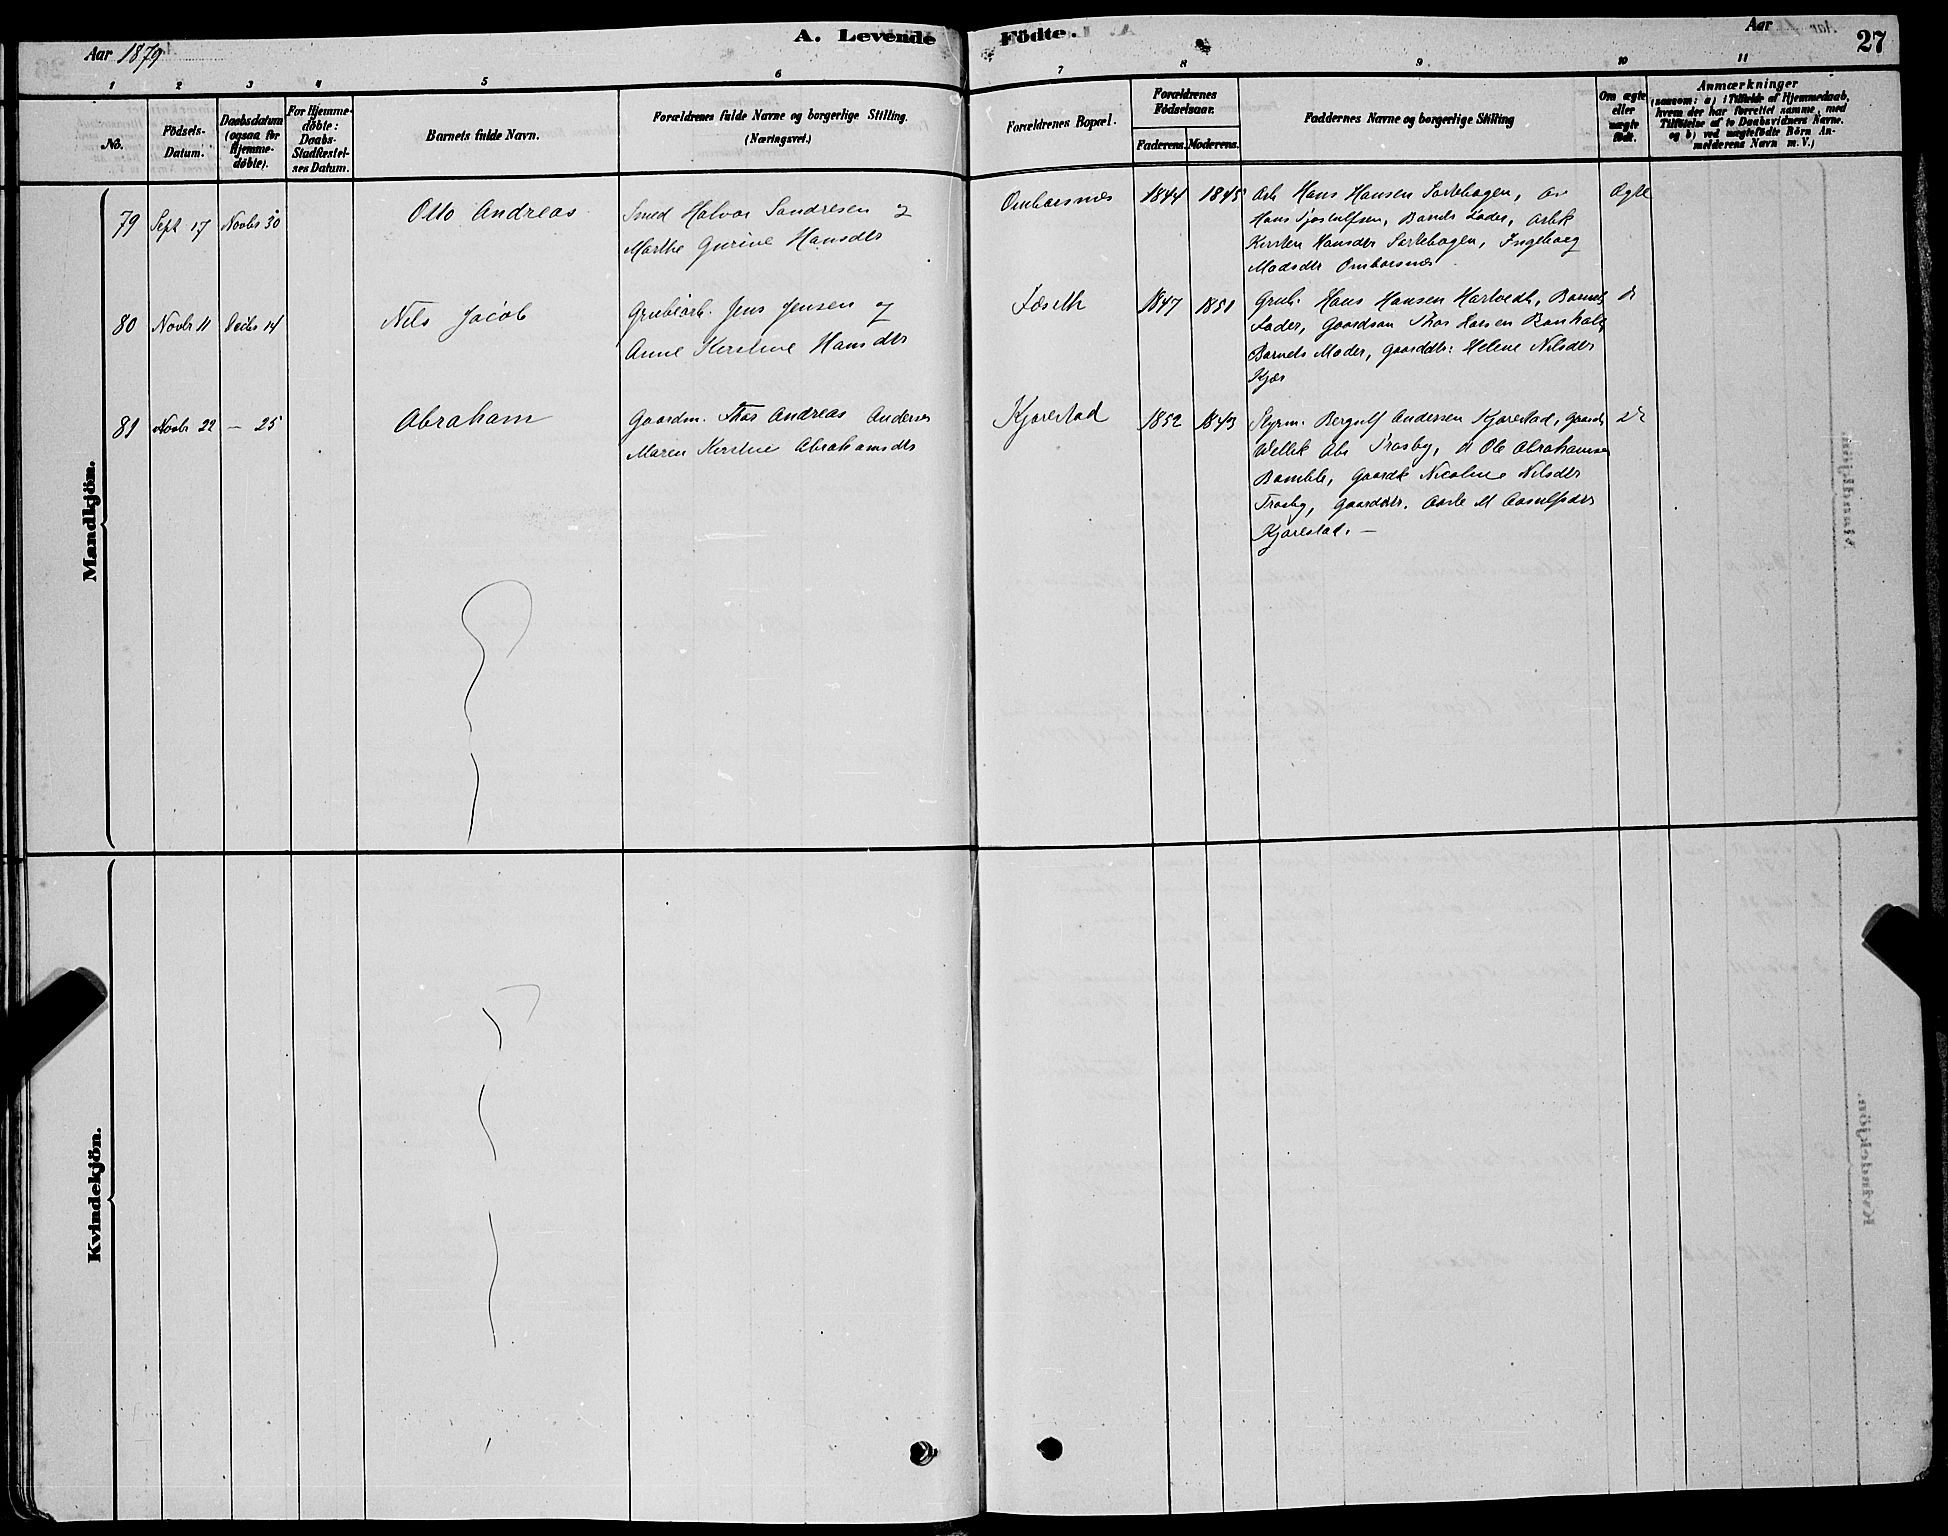 Aar 1879
A. Levende Födte.
Aar
27
1 2 3 4 5 6 7 8 9 10 11
No.
Födsels-
Datum.
Daabsdatum
(ogsaa for
Hjemme-
döbte).
For Hjemme-
döbte:
Daabs-
Stadfæstel-
ses Datum.
Barnets fulde Navn.
Forældrenes fulde Navne og borgerlige Stilling.
(Næringsvei.)
Forældrenes Bopæl.
Forældrenes
Födselsaar.
Faderens. Moderens.
Faddernes Navne og borgerlige Stilling
Om ægte
eller
uægte
födt.
Anmærkninger
(saasom: a) i Tilfælde af Hjemmedaab,
hvem der har forrettet samme, med
Tilföielse af to Daabsvidners Navne.
og b) ved uægtefödte Börn An-
melderens Navn m. V.)
Mandkjön.
79 Sept 17 Novbr 30
Otto Andreas
Smed Halvor Sondresen og
Marthe Gurine Hansdtr
Omborsnæs
1844 1845
Arb Hans Hansen Sortebogen,
Hans Barnets Fader, Arbk
Kirsten Hansdtr Sortebogen, Ingeborg
Madsdtr Omborsnæs
Ægte
80 Novbr 11 Decbr 14
Nils Jacob
Grubearb. Jens Jensen og
Anne Kirstine Hansdtr
1847 1851
Grub. Hans Hansen Hartvedt, Barnets
Fader, Gaardsøn Thor Hansen
Barnets Moder, Gaarddtr: Helene Nilsdtr
Kjær
81 Novbr 22 — 25
Abraham
Gaardm. Thor Andreas Anderse
Maren Kirstine Abrahamsdtr
Kjørestad
1852 1843
Styrm. Bergulf Andersen Kjørestad, Gaardm
Trosby, Ole Abrahamsen
Bamble, Gaardk Nicoline Nilsdtr
Trosby, Gaarddtr. M
Kjørestad. —
Kvindekjön.